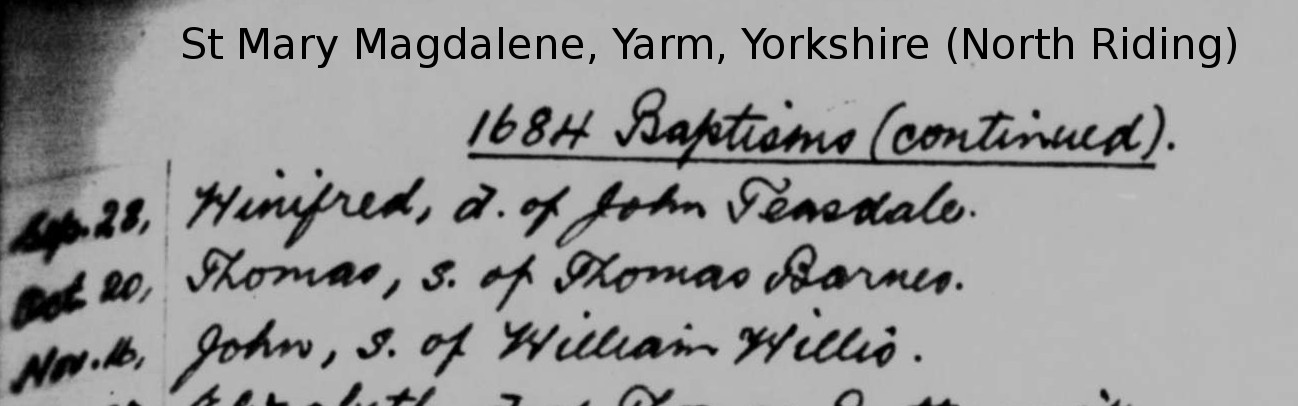 St Mary Magdalene, Yarm, Yorkshire (North Riding)
1684 Baptisms (continued).
Sep. 28, Winifred, d. of John Teasdale.
Oct 20, Thomas, s. of Thomas Barnes.
Nov. 16, John, s. of William Willis.